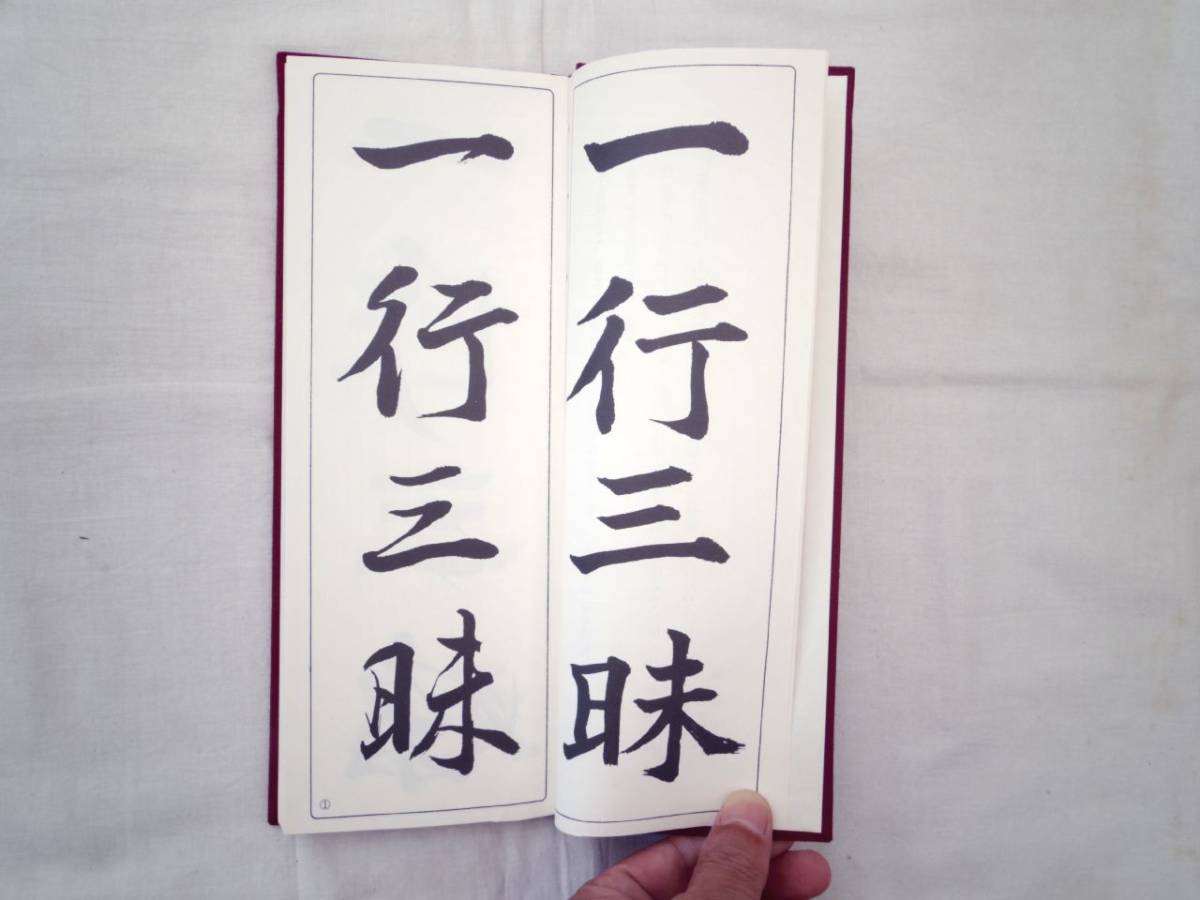 一行三昧
一行三昧
①